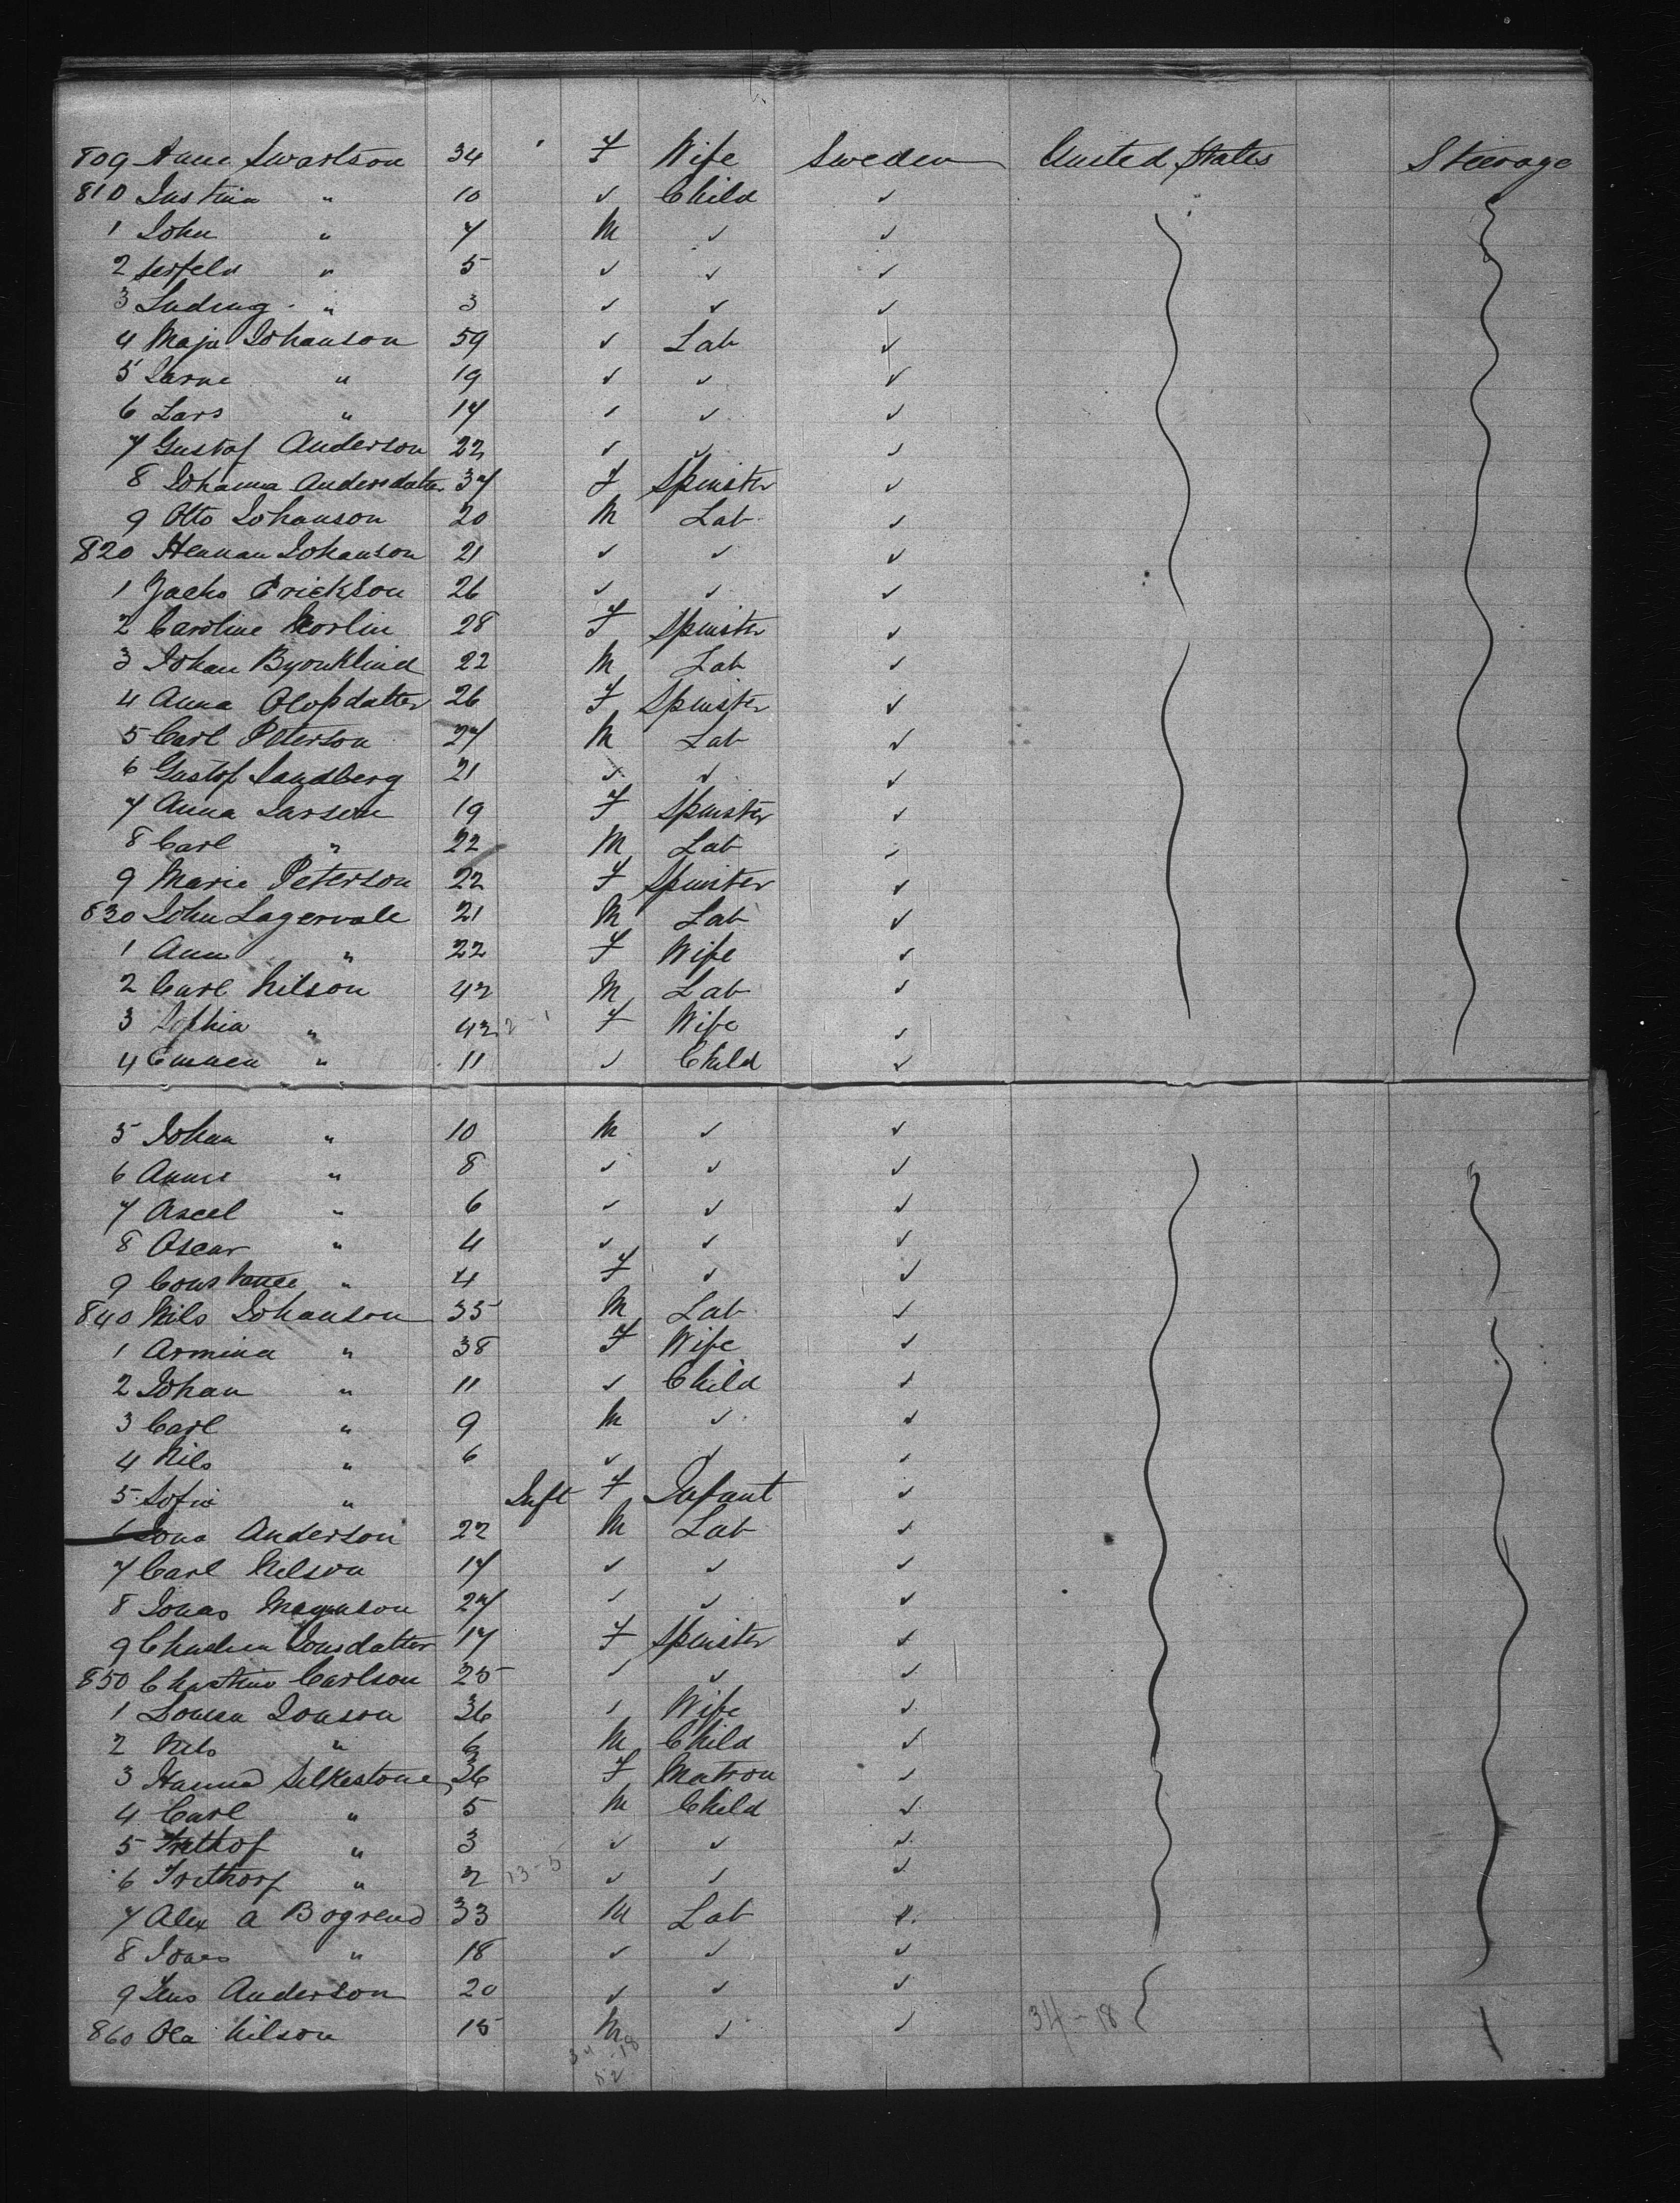 809 Anne Swartson 34 F Wife Sweden United States Steerage
810 Justina " 10 ✓ Child ✓
1 John " 7 M ✓ ✓
2 " 5 ✓ ✓ ✓
3 Ludwig " 3 ✓ ✓ ✓
4 Maja Johanson 59 ✓ Lab ✓
5 " 19 ✓ ✓ ✓
6 Lars " 17 ✓ ✓ ✓
7 Gustaf Anderson 22 ✓ ✓ ✓
8 Johanna Andersdatter 37 F Spinster ✓
9 Otto Johanson 20 M Lab ✓
820 Herman Johanson 21 ✓ ✓ ✓
1 Erickson 26 ✓ ✓ ✓
2 Caroline Norlin 28 F Spinster ✓
3 Johan Byonklind 22 M Lab ✓
4 Anna Olofsdatter 26 F Spinster ✓
5 Carl Peterson 27 M Lab ✓
6 Gustof Sandberg 21 ✓ ✓ ✓
7 Anna Larson 19 F Spinster ✓
8 Carl " 22 M Lab ✓
9 Marie Peterson 22 F Spinster ✓
830 John Lagervale 21 M Lab ✓
1 Ann " 22 F Wife ✓
2 Carl Nilson 42 M Lab ✓
3 Sophia " 42 2-1 F Wife ✓
4 Emmea " 11 ✓ Child ✓
5 Johan " 10 M ✓ ✓
6 " 8 ✓ ✓ ✓
7 Axcel " 6 ✓ ✓ ✓
8 Oscar " 4 ✓ ✓ ✓
9 Constance " 4 F ✓ ✓
840 Nils Johanson 35 M Lab ✓
1 Armina " 38 F Wife ✓
2 Johan " 11 ✓ Child ✓
3 Carl " 9 M ✓ ✓
4 Nils " 6 ✓ ✓ ✓
5 Sofie " Inft F Infant ✓
6 Jona Anderson 22 M Lab ✓
7 Carl Nelson 17 ✓ ✓ ✓
8 Jonas Magnuson 27 ✓ ✓ ✓
9 Jonsdatter 17 F Spinster ✓
850 Carlson 25 ✓ ✓ ✓
1 Jonson 36 ✓ Wife ✓
2 Nels " 6 M Child ✓
3 Hanna Silkestone 36 F Matron ✓
4 Carl " 5 M Child ✓
5 " 3 ✓ ✓ ✓
6 " 2 13-5 ✓ ✓ ✓
7 Alex a Bogrend 33 M Lab ✓
8 Jones " 18 ✓ ✓ ✓
9 Jens Anderson 20 ✓ ✓ ✓
860 Ola Nilson 15 M ✓ ✓ 34-18
34-18
52